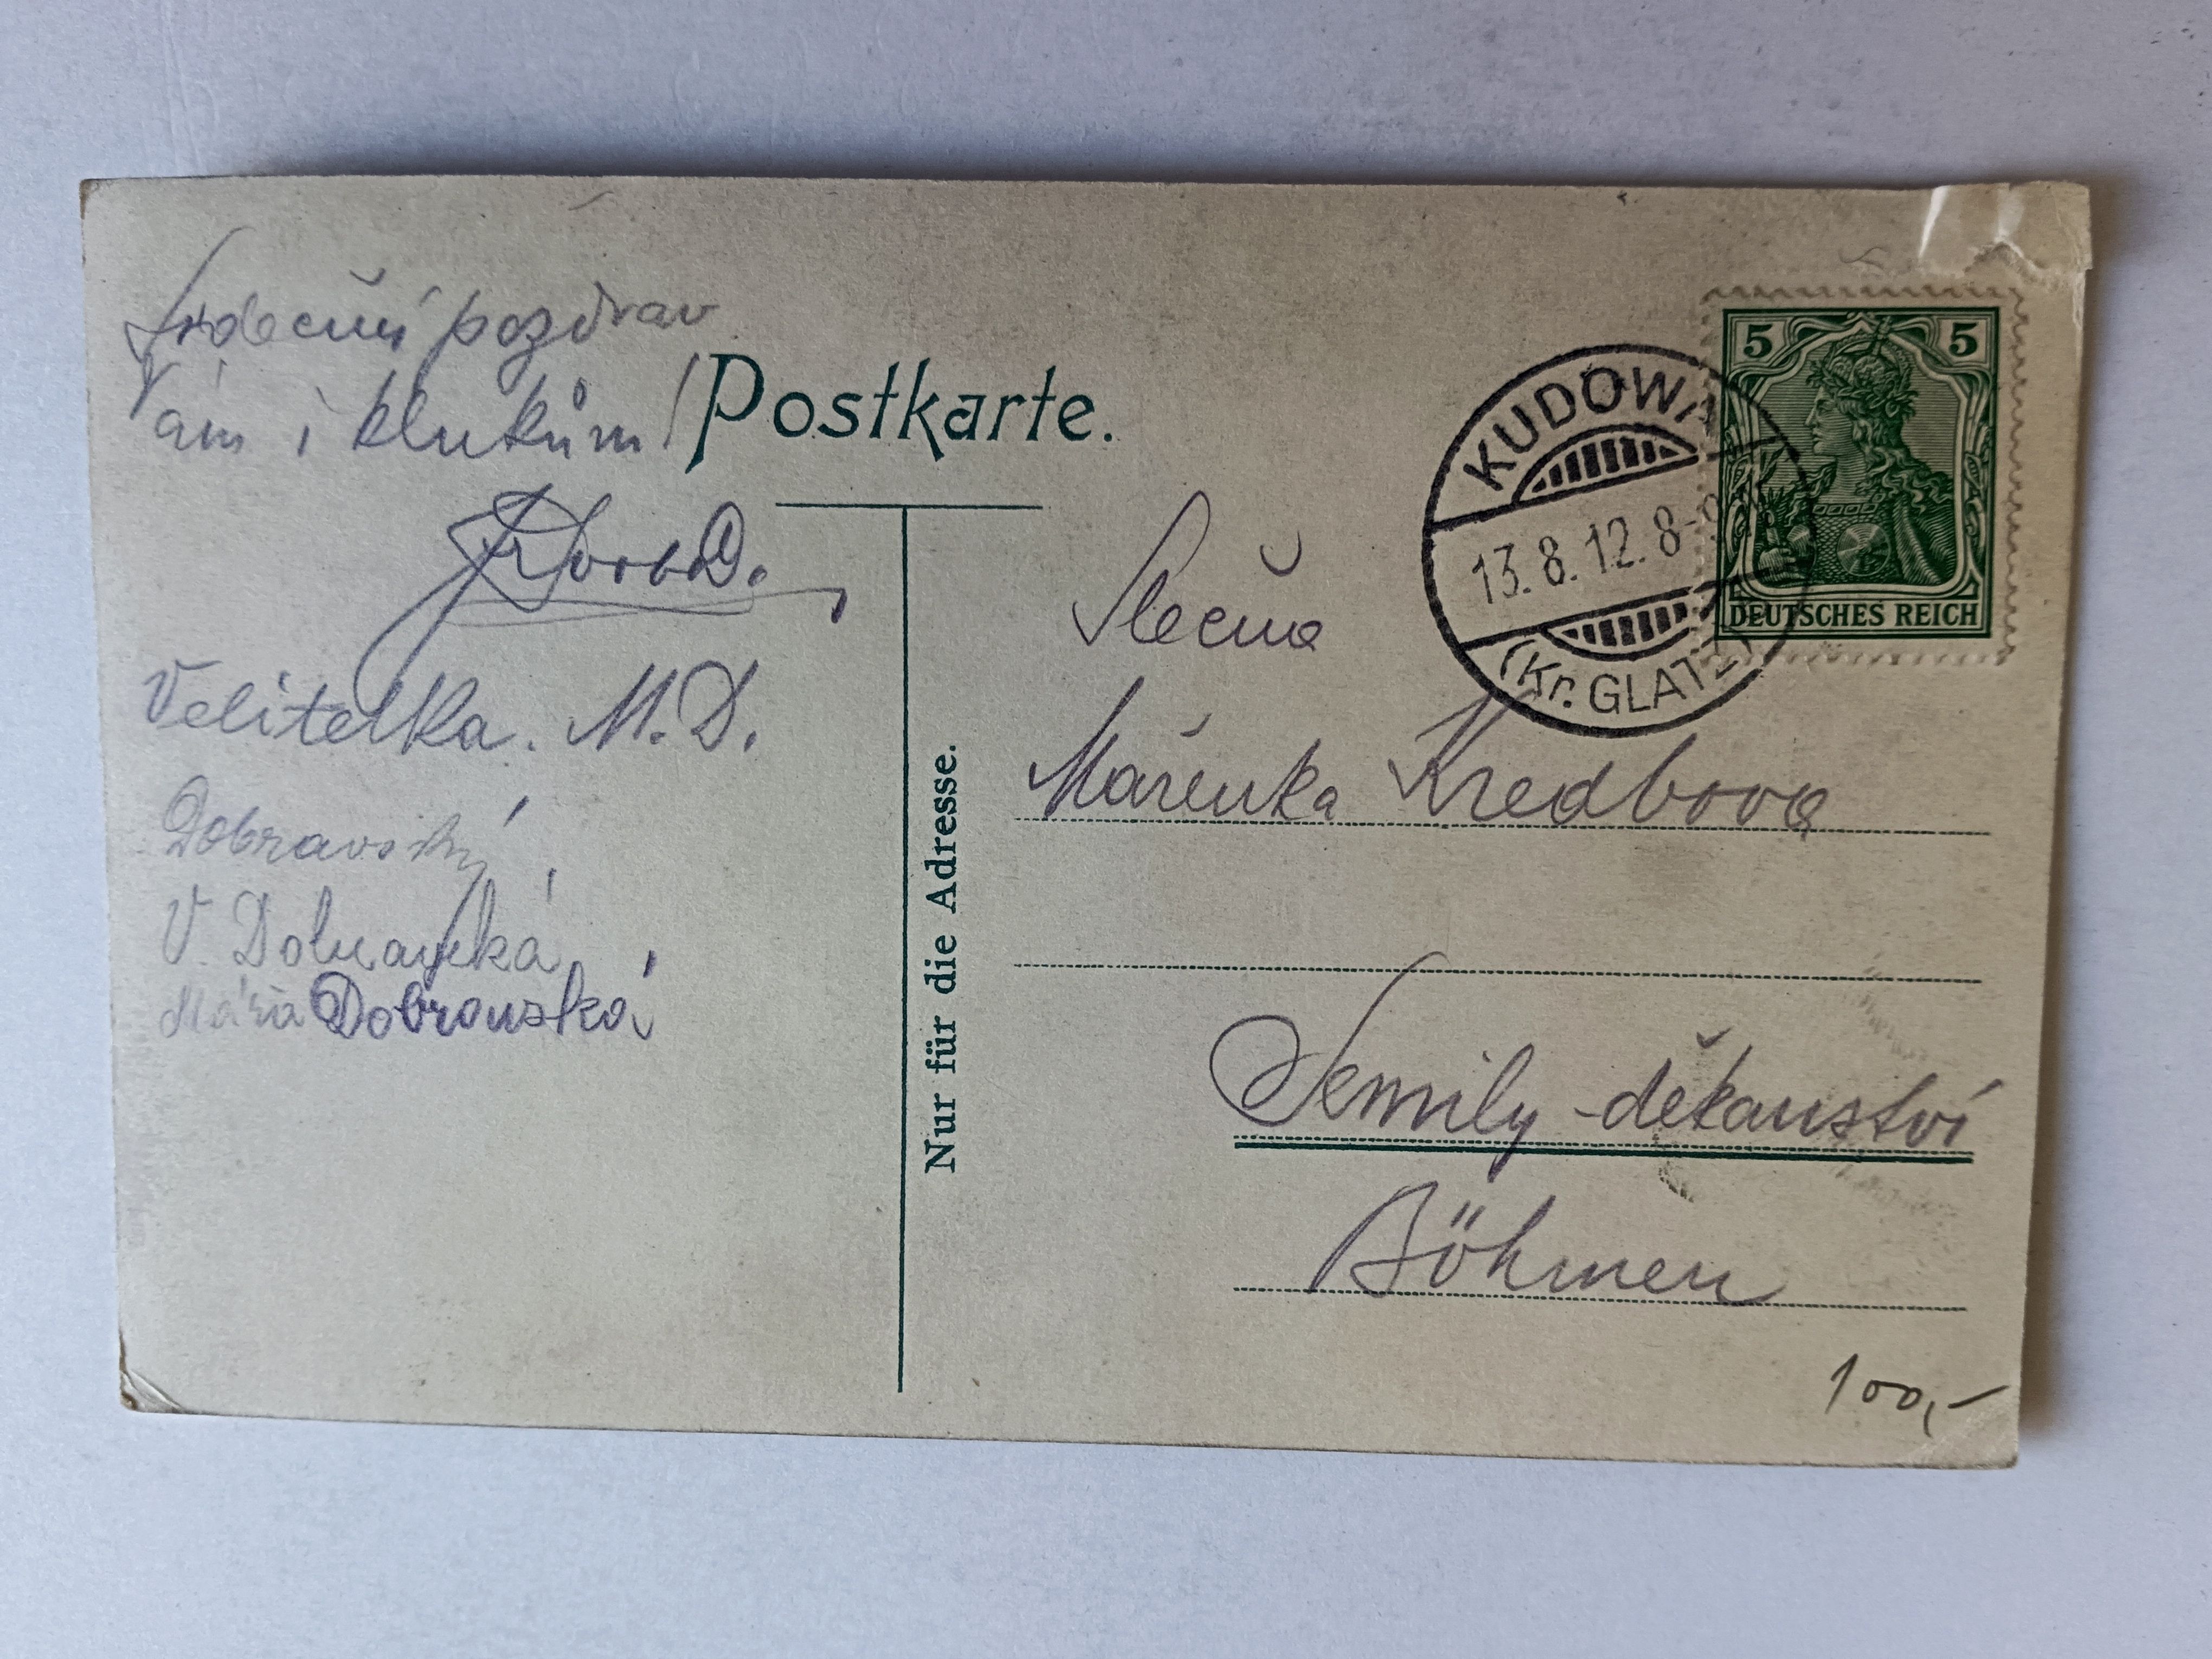 Srdečný pozdrav
Vám i klukům!
Postkarte.
Velitelka. M. D.
Dobravský
V. Dobravská
Mária Dobrouská
Nur für die Adresse.
KUDOWA
13.8.12.8-9
(Kr. GLATZ)
5 5
DEUTSCHES REICH
Slečna
Mářenka Kredbova
Semily - děkanství
Böhmen
100,-